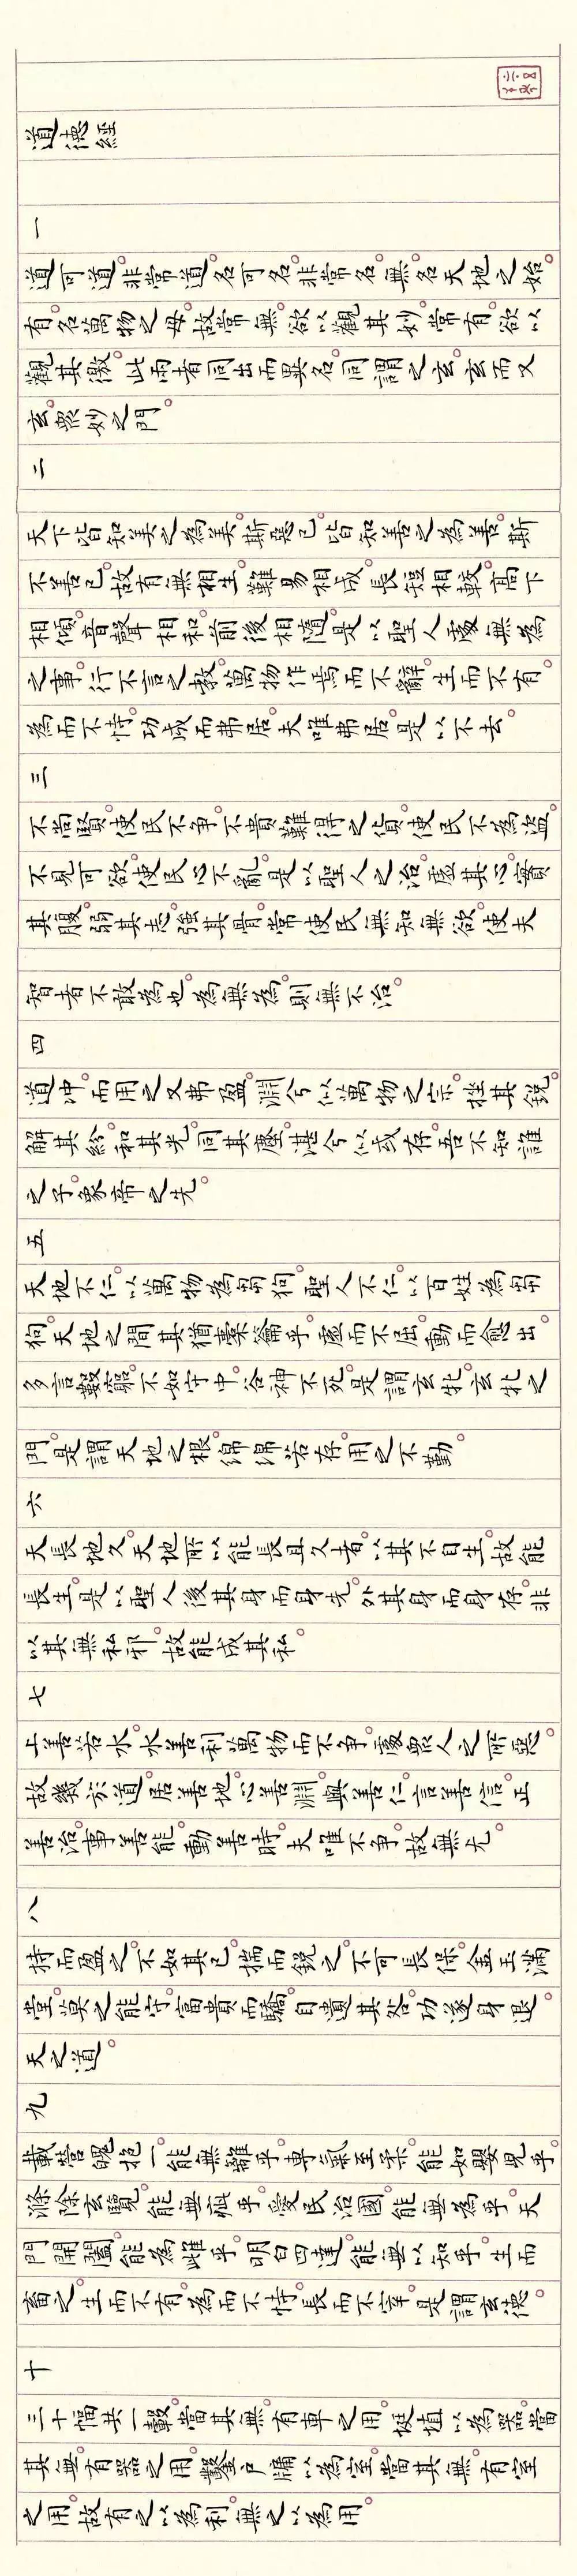 道德經
一
道可道。非常道。名可名。非常名。無名天地之始。
有名萬物之母。故常無。欲以觀其妙。常有。欲以
觀其徼。此兩者同出而異名。同謂之玄。玄而又
玄。眾妙之門。
二
天下皆知美之為美。斯惡已。皆知善之為善。斯
不善已。故有無相生。難易相成。長短相較。高下
相傾。音聲相和。前後相隨。是以聖人處無為
之事。行不言之教。萬物作焉而不辭。生而不有。
為而不恃。功成而弗居。夫唯弗居。是以不去。
三
不尚賢。使民不爭。不貴難得之貨。使民不為盜。
不見可欲。使民心不亂。是以聖人之治。虛其心。實
其腹。弱其志。強其骨。常使民無知無欲。使夫
智者不敢為也。為無為。則無不治。
四
道沖。而用之又弗盈。淵兮似萬物之宗。挫其銳。
解其紛。和其光。同其塵。湛兮似或存。吾不知誰
之子。象帝之先。
五
天地不仁。以萬物為芻狗。聖人不仁。以百姓為芻
狗。天地之間。其猶橐籥乎。虛而不屈。動而愈出。
多言數窮。不如守中。谷神不死。是謂玄牝。玄牝之
門。是謂天地之根。綿綿若存。用之不勤。
六
天長地久。天地所以能長且久者。以其不自生。故能
長生。是以聖人後其身而身先。外其身而身存。非
以其無私邪。故能成其私。
七
上善若水。水善利萬物而不爭。處眾人之所惡。
故幾於道。居善地。心善淵。與善仁。言善信。正
善治。事善能。動善時。夫唯不爭。故無尤。
八
持而盈之。不如其已。揣而銳之。不可長保。金玉滿
堂。莫之能守。富貴而驕。自遺其咎。功遂身退。
天之道。
九
載營魄抱一。能無離乎。專氣至柔。能如嬰兒乎。
滌除玄覽。能無疵乎。愛民治國。能無為乎。天
門開闔。能為雌乎。明白四達。能無以知乎。生而
畜之。生而不有。為而不恃。長而不宰。是謂玄德。
十
三十幅共一轂。當其無。有車之用。埏埴以為器。當
其無。有器之用。鑿戶牖以為室。當其無。有室
之用。故有之以為利。無之以為用。